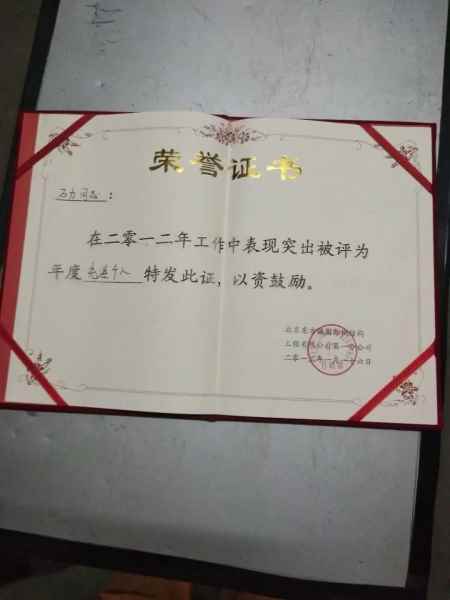 荣誉证书
石力同志：
在二零一二年工作中表现突出被评为
年度先进个人 特发此证，以资鼓励。
北京
工程有限公司第一分公司
二零一三年一月二十六日